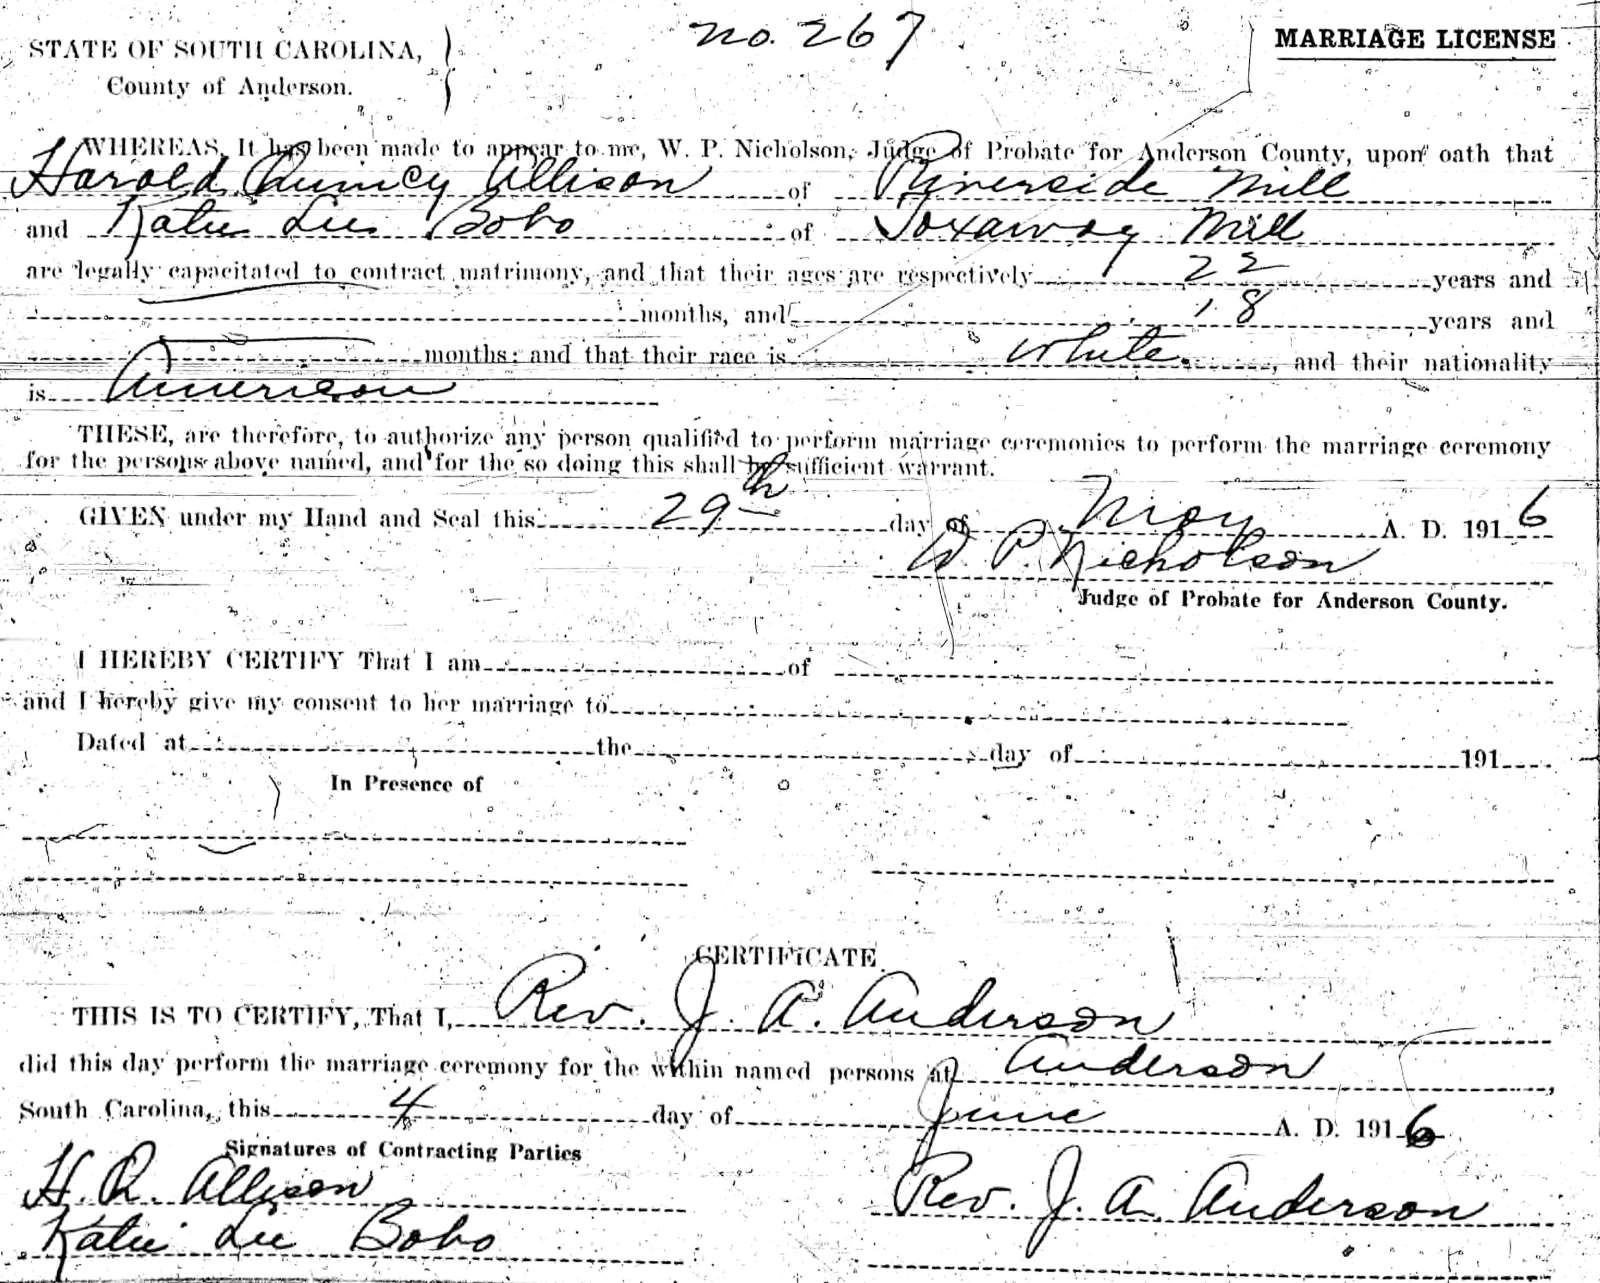 No. 267
STATE OF SOUTH CAROLINA,
County of Anderson.
MARRIAGE LICENSE
WHEREAS, It has been made to appear to me, W. P. Nicholson, Judge of Probate for Anderson County, upon oath that
Harold Quincy Allison of Riverside Mill
and Katie Lee Bobo of Toxaway Mill
are legally capacitated to contract matrimony, and that their ages are respectively 22 years and
months, and 18 years and
months; and that their race is white, and their nationality
is American
THESE, are therefore, to authorize any person qualified to perform marriage ceremonies to perform the marriage ceremony
for the persons above named, and for the so doing this shall be sufficient warrant.
GIVEN under my Hand and Seal this 29th day of May A. D. 1916
W. P. Nicholson
Judge of Probate for Anderson County.
I HEREBY CERTIFY That I am of
and I hereby give my consent to her marriage to
Dated at the day of 191
In Presence of
CERTIFICATE
THIS IS TO CERTIFY, That I, Rev. J. A. Anderson
did this day perform the marriage ceremony for the within named persons at Anderson,
South Carolina, this 4 day of June A. D. 1916
Signatures of Contracting Parties
H. Q. Allison
Rev. J. A. Anderson
Katie Lee Bobo